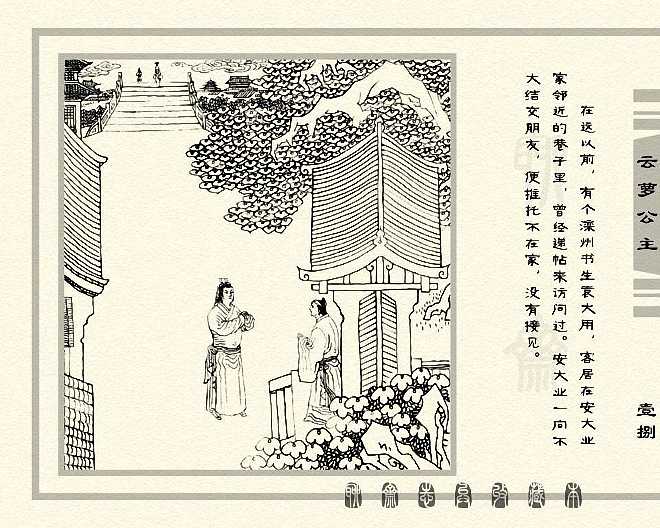 云萝公主
壹捌
在这以前，有个滦州书生袁大用，客居在安大业
家邻近的巷子里，曾经递帖来访问过。安大业一向不
大结交朋友，便推托不在家，没有接见。